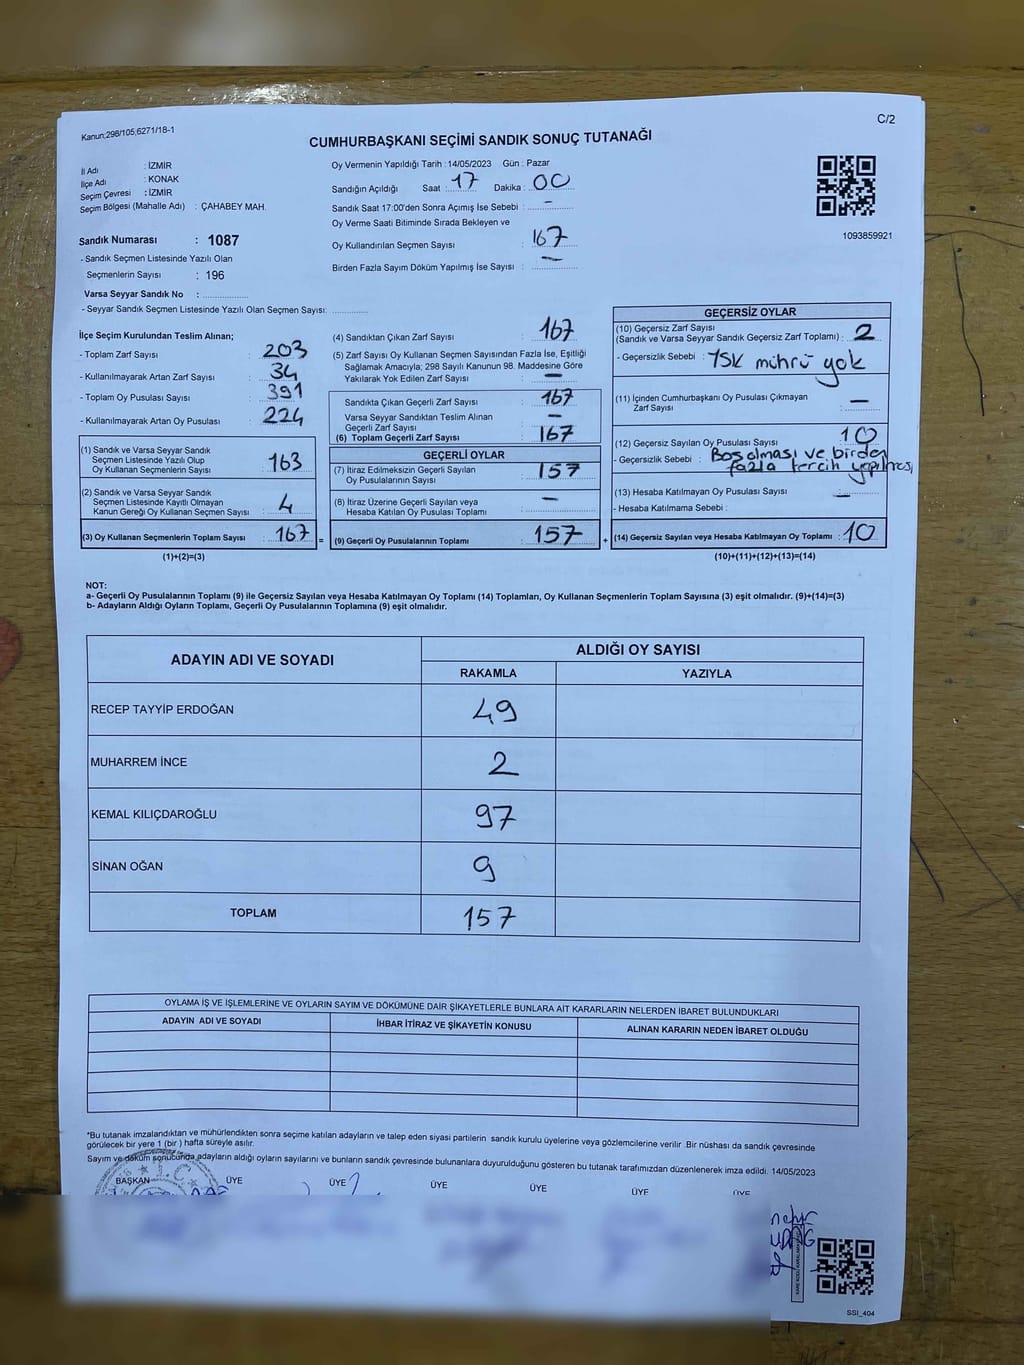 Kanun;298/105;6271/18-1
C/2
CUMHURBAŞKANI SEÇİMİ SANDIK SONUÇ TUTANAĞI
İl Adı : İZMİR
İlçe Adı : KONAK
Seçim Çevresi : İZMİR
Seçim Bölgesi (Mahalle Adı) : ÇAHABEY MAH.
Sandık Numarası : 1087
- Sandık Seçmen Listesinde Yazılı Olan
Seçmenlerin Sayısı : 196
Varsa Seyyar Sandık No : ................
- Seyyar Sandık Seçmen Listesinde Yazılı Olan Seçmen Sayısı: ............
Oy Vermenin Yapıldığı Tarih : 14/05/2023 Gün : Pazar
Sandığın Açıldığı Saat : 17 Dakika : 00
Sandık Saat 17:00'den Sonra Açımış İse Sebebi : -
Oy Verme Saati Bitiminde Sırada Bekleyen ve
Oy Kullandırılan Seçmen Sayısı : 167
Birden Fazla Sayım Döküm Yapılmış İse Sayısı : —
1093859921
İlçe Seçim Kurulundan Teslim Alınan;
- Toplam Zarf Sayısı : 203
- Kullanılmayarak Artan Zarf Sayısı : 34
- Toplam Oy Pusulası Sayısı : 391
- Kullanılmayarak Artan Oy Pusulası : 224
(1) Sandık ve Varsa Seyyar Sandık
Seçmen Listesinde Yazılı Olup
Oy Kullanan Seçmenlerin Sayısı : 163
(2) Sandık ve Varsa Seyyar Sandık
Seçmen Listesinde Kayıtlı Olmayan
Kanun Gereği Oy Kullanan Seçmen Sayısı : 4
(3) Oy Kullanan Seçmenlerin Toplam Sayısı : 167 =
(1)+(2)=(3)
(4) Sandıktan Çıkan Zarf Sayısı : 167
(5) Zarf Sayısı Oy Kullanan Seçmen Sayısından Fazla İse, Eşitliği
Sağlamak Amacıyla; 298 Sayılı Kanunun 98. Maddesine Göre
Yakılarak Yok Edilen Zarf Sayısı : —
Sandıkta Çıkan Geçerli Zarf Sayısı : 167
Varsa Seyyar Sandıktan Teslim Alınan
Geçerli Zarf Sayısı : —
(6) Toplam Geçerli Zarf Sayısı : 167
GEÇERLİ OYLAR
(7) İtiraz Edilmeksizin Geçerli Sayılan
Oy Pusulalarının Sayısı : 157
(8) İtiraz Üzerine Geçerli Sayılan veya
Hesaba Katılan Oy Pusulası Toplamı : —
(9) Geçerli Oy Pusulalarının Toplamı : 157 +
GEÇERSİZ OYLAR
(10) Geçersiz Zarf Sayısı
(Sandık ve Varsa Seyyar Sandık Geçersiz Zarf Toplamı) : 2
- Geçersizlik Sebebi : YSK mührü yok
(11) İçinden Cumhurbaşkanı Oy Pusulası Çıkmayan
Zarf Sayısı : —
(12) Geçersiz Sayılan Oy Pusulası Sayısı : 10
- Geçersizlik Sebebi : Boş olması ve birden
fazla tercih yapılması
(13) Hesaba Katılmayan Oy Pusulası Sayısı : —
- Hesaba Katılmama Sebebi :
(14) Geçersiz Sayılan veya Hesaba Katılmayan Oy Toplamı : 10
(10)+(11)+(12)+(13)=(14)
NOT:
a- Geçerli Oy Pusulalarının Toplamı (9) ile Geçersiz Sayılan veya Hesaba Katılmayan Oy Toplamı (14) Toplamları, Oy Kullanan Seçmenlerin Toplam Sayısına (3) eşit olmalıdır. (9)+(14)=(3)
b- Adayların Aldığı Oyların Toplamı, Geçerli Oy Pusulalarının Toplamına (9) eşit olmalıdır.
ADAYIN ADI VE SOYADI ALDIĞI OY SAYISI
RAKAMLA YAZIYLA
RECEP TAYYİP ERDOĞAN 49
MUHARREM İNCE 2
KEMAL KILIÇDAROĞLU 97
SİNAN OĞAN 9
TOPLAM 157
OYLAMA İŞ VE İŞLEMLERİNE VE OYLARIN SAYIM VE DÖKÜMÜNE DAİR ŞİKAYETLERLE BUNLARA AİT KARARLARIN NELERDEN İBARET BULUNDUKLARI
ADAYIN ADI VE SOYADI İHBAR İTİRAZ VE ŞİKAYETİN KONUSU ALINAN KARARIN NEDEN İBARET OLDUĞU
*Bu tutanak imzalandıktan ve mühürlendikten sonra seçime katılan adayların ve talep eden siyasi partilerin sandık kurulu üyelerine veya gözlemcilerine verilir .Bir nüshası da sandık çevresinde
görülecek bir yere 1 (bir ) hafta süreyle asılır.
Sayım ve döküm sonucunda adayların aldığı oyların sayılarını ve bunların sandık çevresinde bulunanlara duyurulduğunu gösteren bu tutanak tarafımızdan düzenlenerek imza edildi. 14/05/2023
BAŞKAN ÜYE ÜYE ÜYE ÜYE ÜYE ÜYE
T.C.
SSI_404